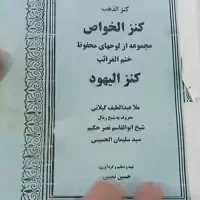 كنز الذهب
كنز الخواص
مجموعه از لوحهای محفوظ
ختم الغرائب
كنز اليهود
ملا عبداللطیف گیلانی
معروف به شیخ رمال
شیخ ابوالقاسم نصر حکیم
سید سلیمان الحسینی
تهیه و تنظیم و گردآوری:
حسین نمینی